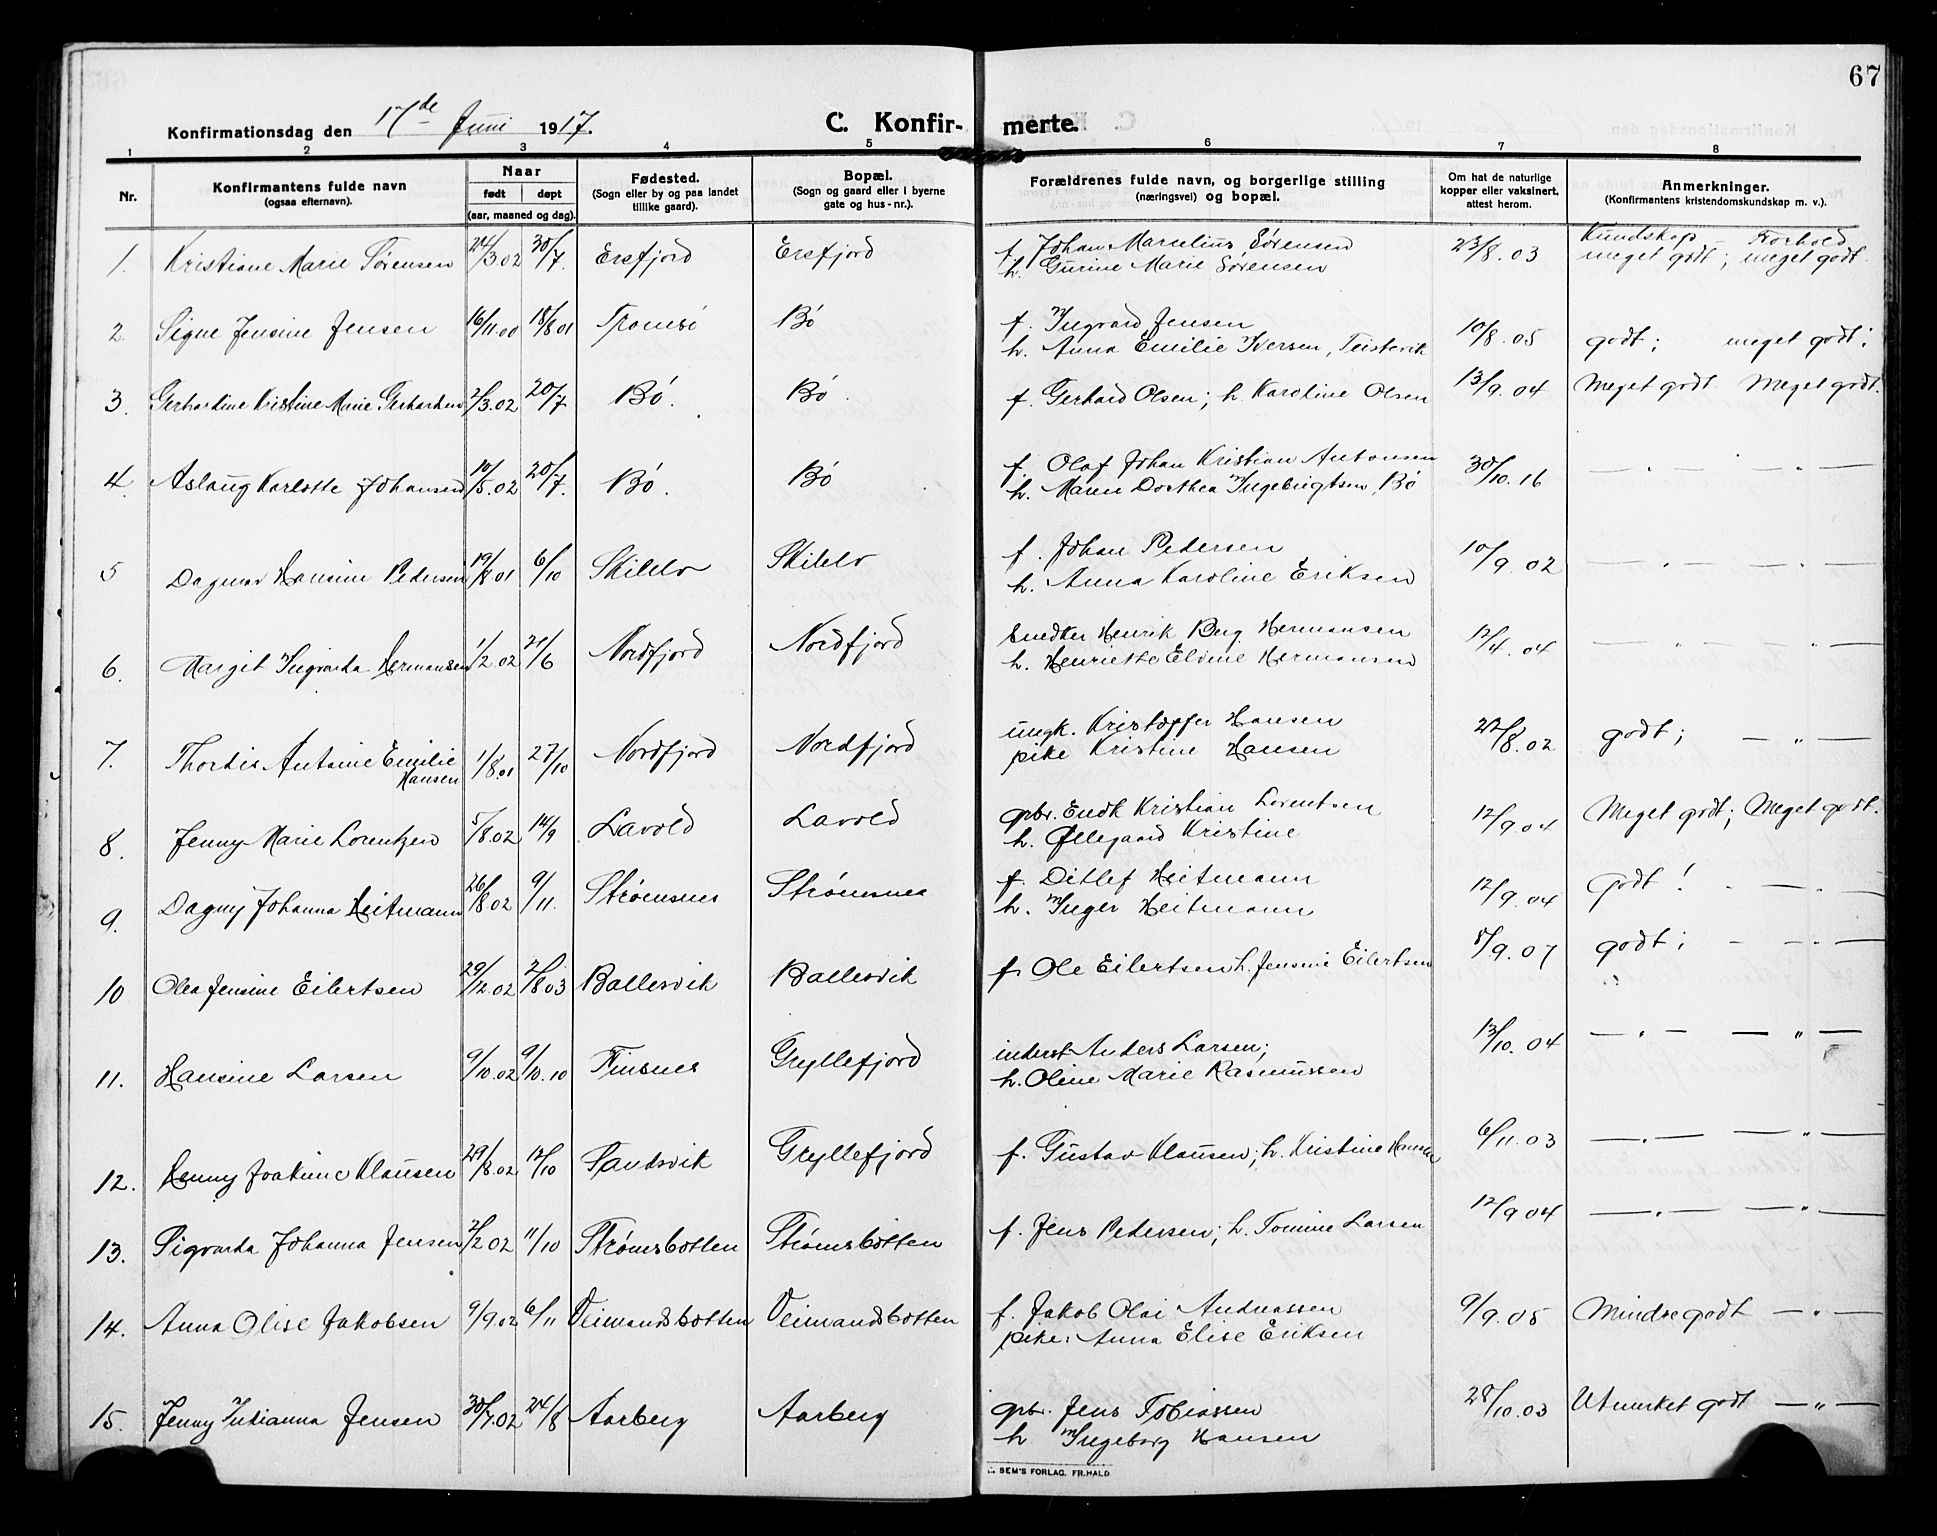 67
Konfirmationsdag den 17de Juni 1917. C. Konfir- merte.
1 2 3 4 5 6 7 8
Nr. Konfirmantens fulde navn (ogsaa efternavn). Naar født døpt (aar, maaned og dag). Fødested. (Sogn eller by og paa landet tillike gaard). Bopæl. (Sogn og gaard eller i byerne gate og hus-nr.). Forældrenes fulde navn, og borgerlige stilling (næringsvei) og bopæl. Om hat de naturlige kopper eller vaksinert, attest herom. Anmerkninger. (Konfirmantens kristendomskundskap m. v.).
Kundskap Forhold
1. Kristiane Marie Sørensen 24/3.02 30/7. Ersfjord Ersfjord f. Johan Marcelius Sørensen 23/8.03 meget godt; meget godt.
h. Gurine Marie Sørensen
2. Signe Jensine Jensen 16/11.00 18/8 01 Tromsø Bö f. Ingvard Jensen 10/8.05 godt; meget godt;
h. Anna Emilie Iversen, Teistevik
3. Gerhardine Kristine Marie Gerhardsen 2/3.02 20/7 Bö. Bö. f. Gerhard Olsen; h. Karoline Olsen 13/9.04 Meget godt Meget godt.
4. Aslaug Karlotte Johansen 10/5.02 20/7. Bö. Bö f. Olaf Johan Kristian Antonsen 30/10.16 — " — — " —
h. Maren Dorthea Ingebrigtsen, Bö
5 Dagmar Hansine Pedersen 19/8.01 6/10 Skilelv Skilelv f. Johan Pedersen 10/9.02 — " — — " —
h. Anna Karoline Eriksen
6. Margit Ingvarda Hermansen 1/2.02 21/6 Nordfjord Nordfjord Snedker Henrik Berg Hermansen 12/4.04 — " — — " —
h. Henriette Elvine Hermansen
7. Thordis Antonie Emilie Hansen 1/8.01 27/10 Nordfjord Nordfjord ungk. Kristoffer Hansen 22/8.02 godt; — " —
pike Kristine Hansen
8. Jenny Marie Lorentzen 5/8.02 14/9 Lavold Lavold gbr. Endk Kristian Lorentsen 12/9.04 Meget godt; Meget godt.
h. Øllegaard Kristine
9. Dagny Johanna Heitmann 26/8 02 9/11. Strømsnes Strømsnes f. Ditlef Heitmann 12/9.04 Godt! — " —
h. Inger Heitmann
10 Olea Jensine Eilertsen 29/12.02 2/8 03 Ballesvik Ballesvik f. Ole Eilertsen h. Jensine Eilertsen 8/9.07 godt; — " —
11. Hansine Larsen 9/10.02 9/10.10 Finsnes Gryllefjord inderst Anders Larsen; 13/10.04 — " — — " —
h. Oline Marie Rasmussen
12. Henny Joakime Klausen 29/8.02 12/10 Sandvik Gryllefjord f. Gustav Klausen; h. Kristine Hansen 6/11.03 — " — — " —
13. Sigvarda Johanna Jensen 2/2 02 11/10 Strømsbotten Strømsbotten f. Jens Pedersen; h. Tomine Larsen 12/9 04 — " — — " —
14. Anna Olise Jakobsen 9/9.02 6/11 Veimandsbotten Veimandsbotten f. Jakob Olai Andreassen 9/9.05 Mindre godt — " —
pike: Anna Elise Eriksen
15. Jenny Julianna Jensen 30/7.02 24/8 Aarberg Aarberg gbr. Jens Tobiassen 28/10.03 Utmerket godt — " —
h Ingeborg Hansen
SEM'S FORLAG. FR.HALD